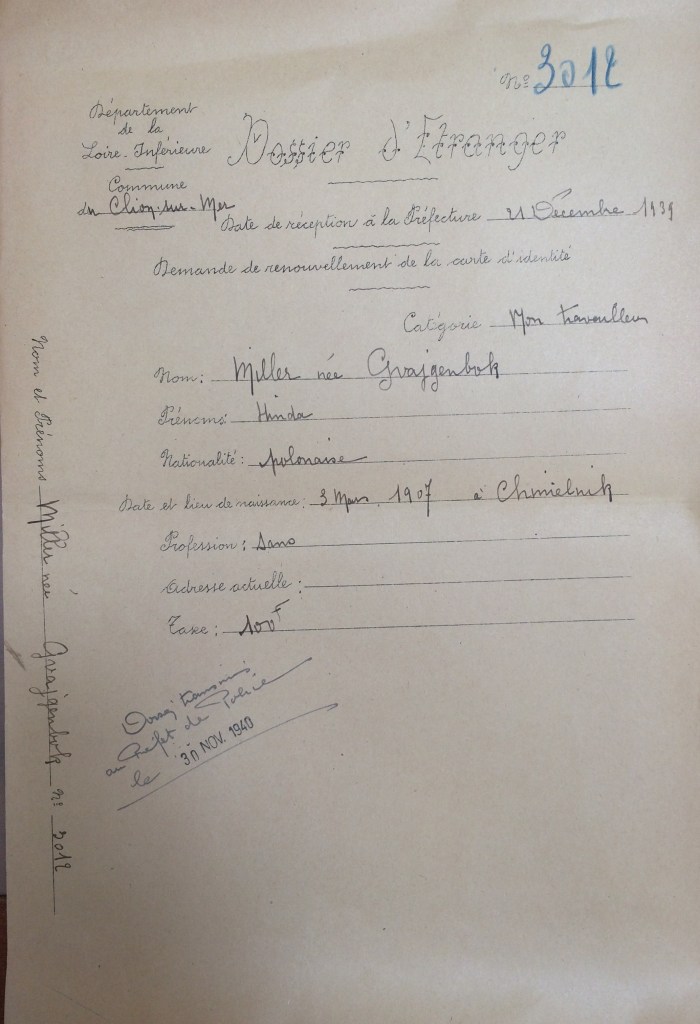 Nº 3012
Département
de la
Loire-Inférieure
Dossier d'Etranger
Commune
du Clion-sur-Mer
Date de réception à la Préfecture 21 Décembre 1939
Demande de renouvellement de la carte d'identité
Catégorie Non travailleur
Nom: Miller née Gvajgenbok
Prénoms: Hinda
Nationalité: polonaise
Date et lieu de naissance: 3 Mars 1907 à Chmielnik
Profession: Sans
Adresse actuelle:
Taxe: 100F
Nom et Prénoms Miller née Gvajgenbok nº 3012
transmis
au Préfet de Police
le 30 NOV. 1940